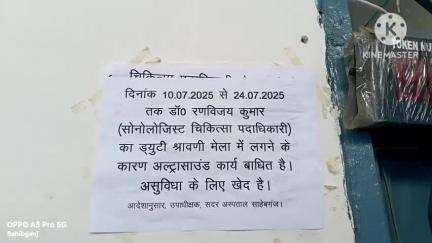 KINEMASTER
TOKEN NU
दिनांक 10.07.2025 से 24.07.2025
तक डॉ० रणविजय कुमार
(सोनोलोजिस्ट चिकित्सा पदाधिकारी)
का ड्युटी श्रावणी मेला में लगने के
कारण अल्ट्रासाउंड कार्य बाधित है।
असुविधा के लिए खेद है।
आदेशानुसार, उपाधीक्षक, सदर अस्पताल साहेबगंज।
OPPO A3 Pro 5G
Sahibganj